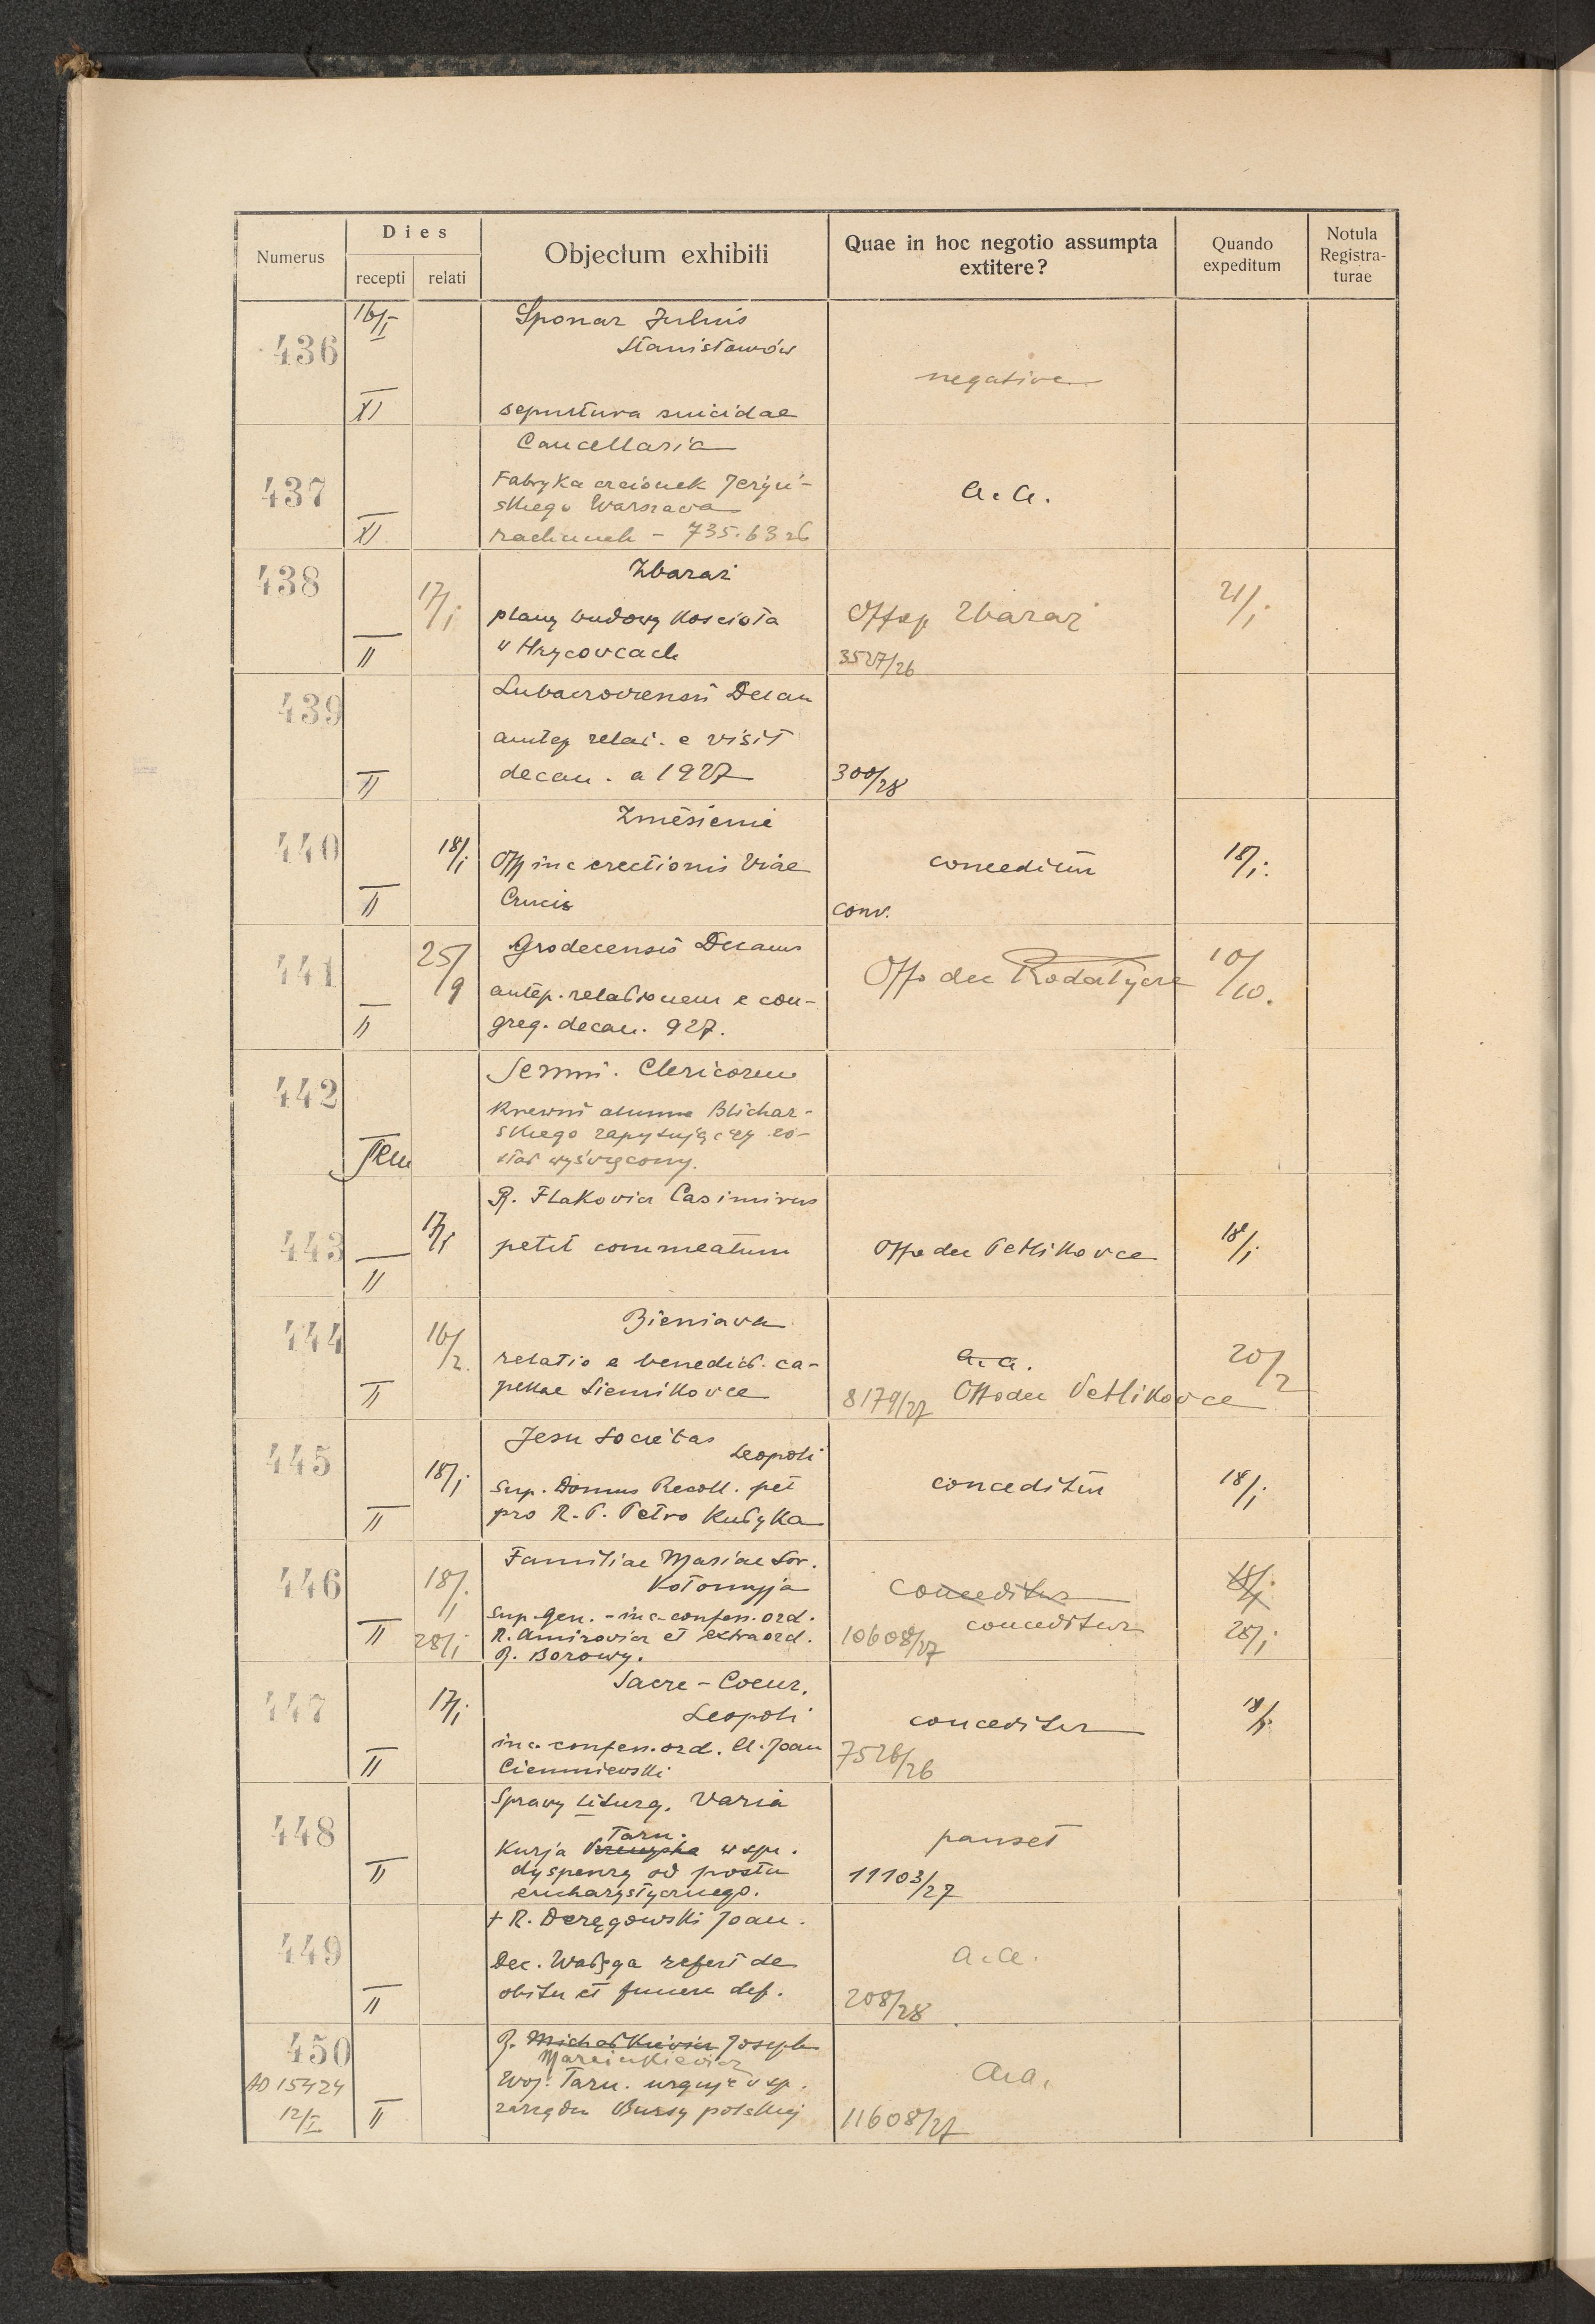 Numerus
Dies
recepti relati
Objectum exhibiti
Quae in hoc negotio assumpta
extitere?
Quando
expeditum
Notula
Registra-
turae
436
16/I
Sponar Julius
Stanisławów
negative
XI
sepultura suicidae
437
Cancellaria
Fabryka czcionek Jeżyń-
skiego Warszawa
a.a.
XI
rachunek - 735.63 zł
438
Zbaraż
17/i
plany budowy Kościoła
Offap Zbaraż
21/i
II
w Hrycovcach
3527/26
439
Lubaczoviensis Decan
decan. a 1927
II
300/28
440
Zniesienie
18/i
Off in c erectionis Viae
conceditur
18/i.
II
Crucis
conv.
441
Grodecensis Decanus
25/9
antep. relationem e con-
Offo dec Rodatycze
10/10.
II
greg. decan. 927.
442
Semin. Clericorum
Krewni alumna Blichar-
skiego zapytują czy zo-
stał wyświęcony.
443
R. Flakovicz Casimirus
17/i
petit commeatum
Offo dec Petlikovce
18/i
II
444
Bieniava
16/2.
relatio e benedict. ca-
a.a.
20/2
II
pellae Siemikovce
8179/27 Offo dec Petlikovce
445
Jesu Societas
Leopoli
18/i
Sup. Domus Recoll. pet
conceditur
18/i
II
pro R. P. Petro Kutyka
446
Familiae Mariae Sor.
Kołomyja
18/i
conceditur
18/i
Sup. Gen. - in c. confess. ord.
II
28/i
R. Amirovicz et extraord.
R. Borowy.
10608/27
conceditur
28/i
447
Sacre-Coeur.
17/i
Leopoli
conceditur
18/i
in c. confess. ord. A. Joan
II
Ciemniewski
7526/26
448
Sprawy liturg. Varia
Tarn.
Kurja w spr.
II
dyspenzy od postu
eucharystycznego.
11103/27
449
+ R. Deręgowski Joan.
Dec. Wałęga refert de
a.a.
II
obitu et funere def.
208/28
450
R. Michałkiewicz Joseph
Marcinkiewicz
AD 15424
Woj. Tarn. urguje w sp.
a.a.
12/I
II
zarządu Bursy polskiej
11608/27